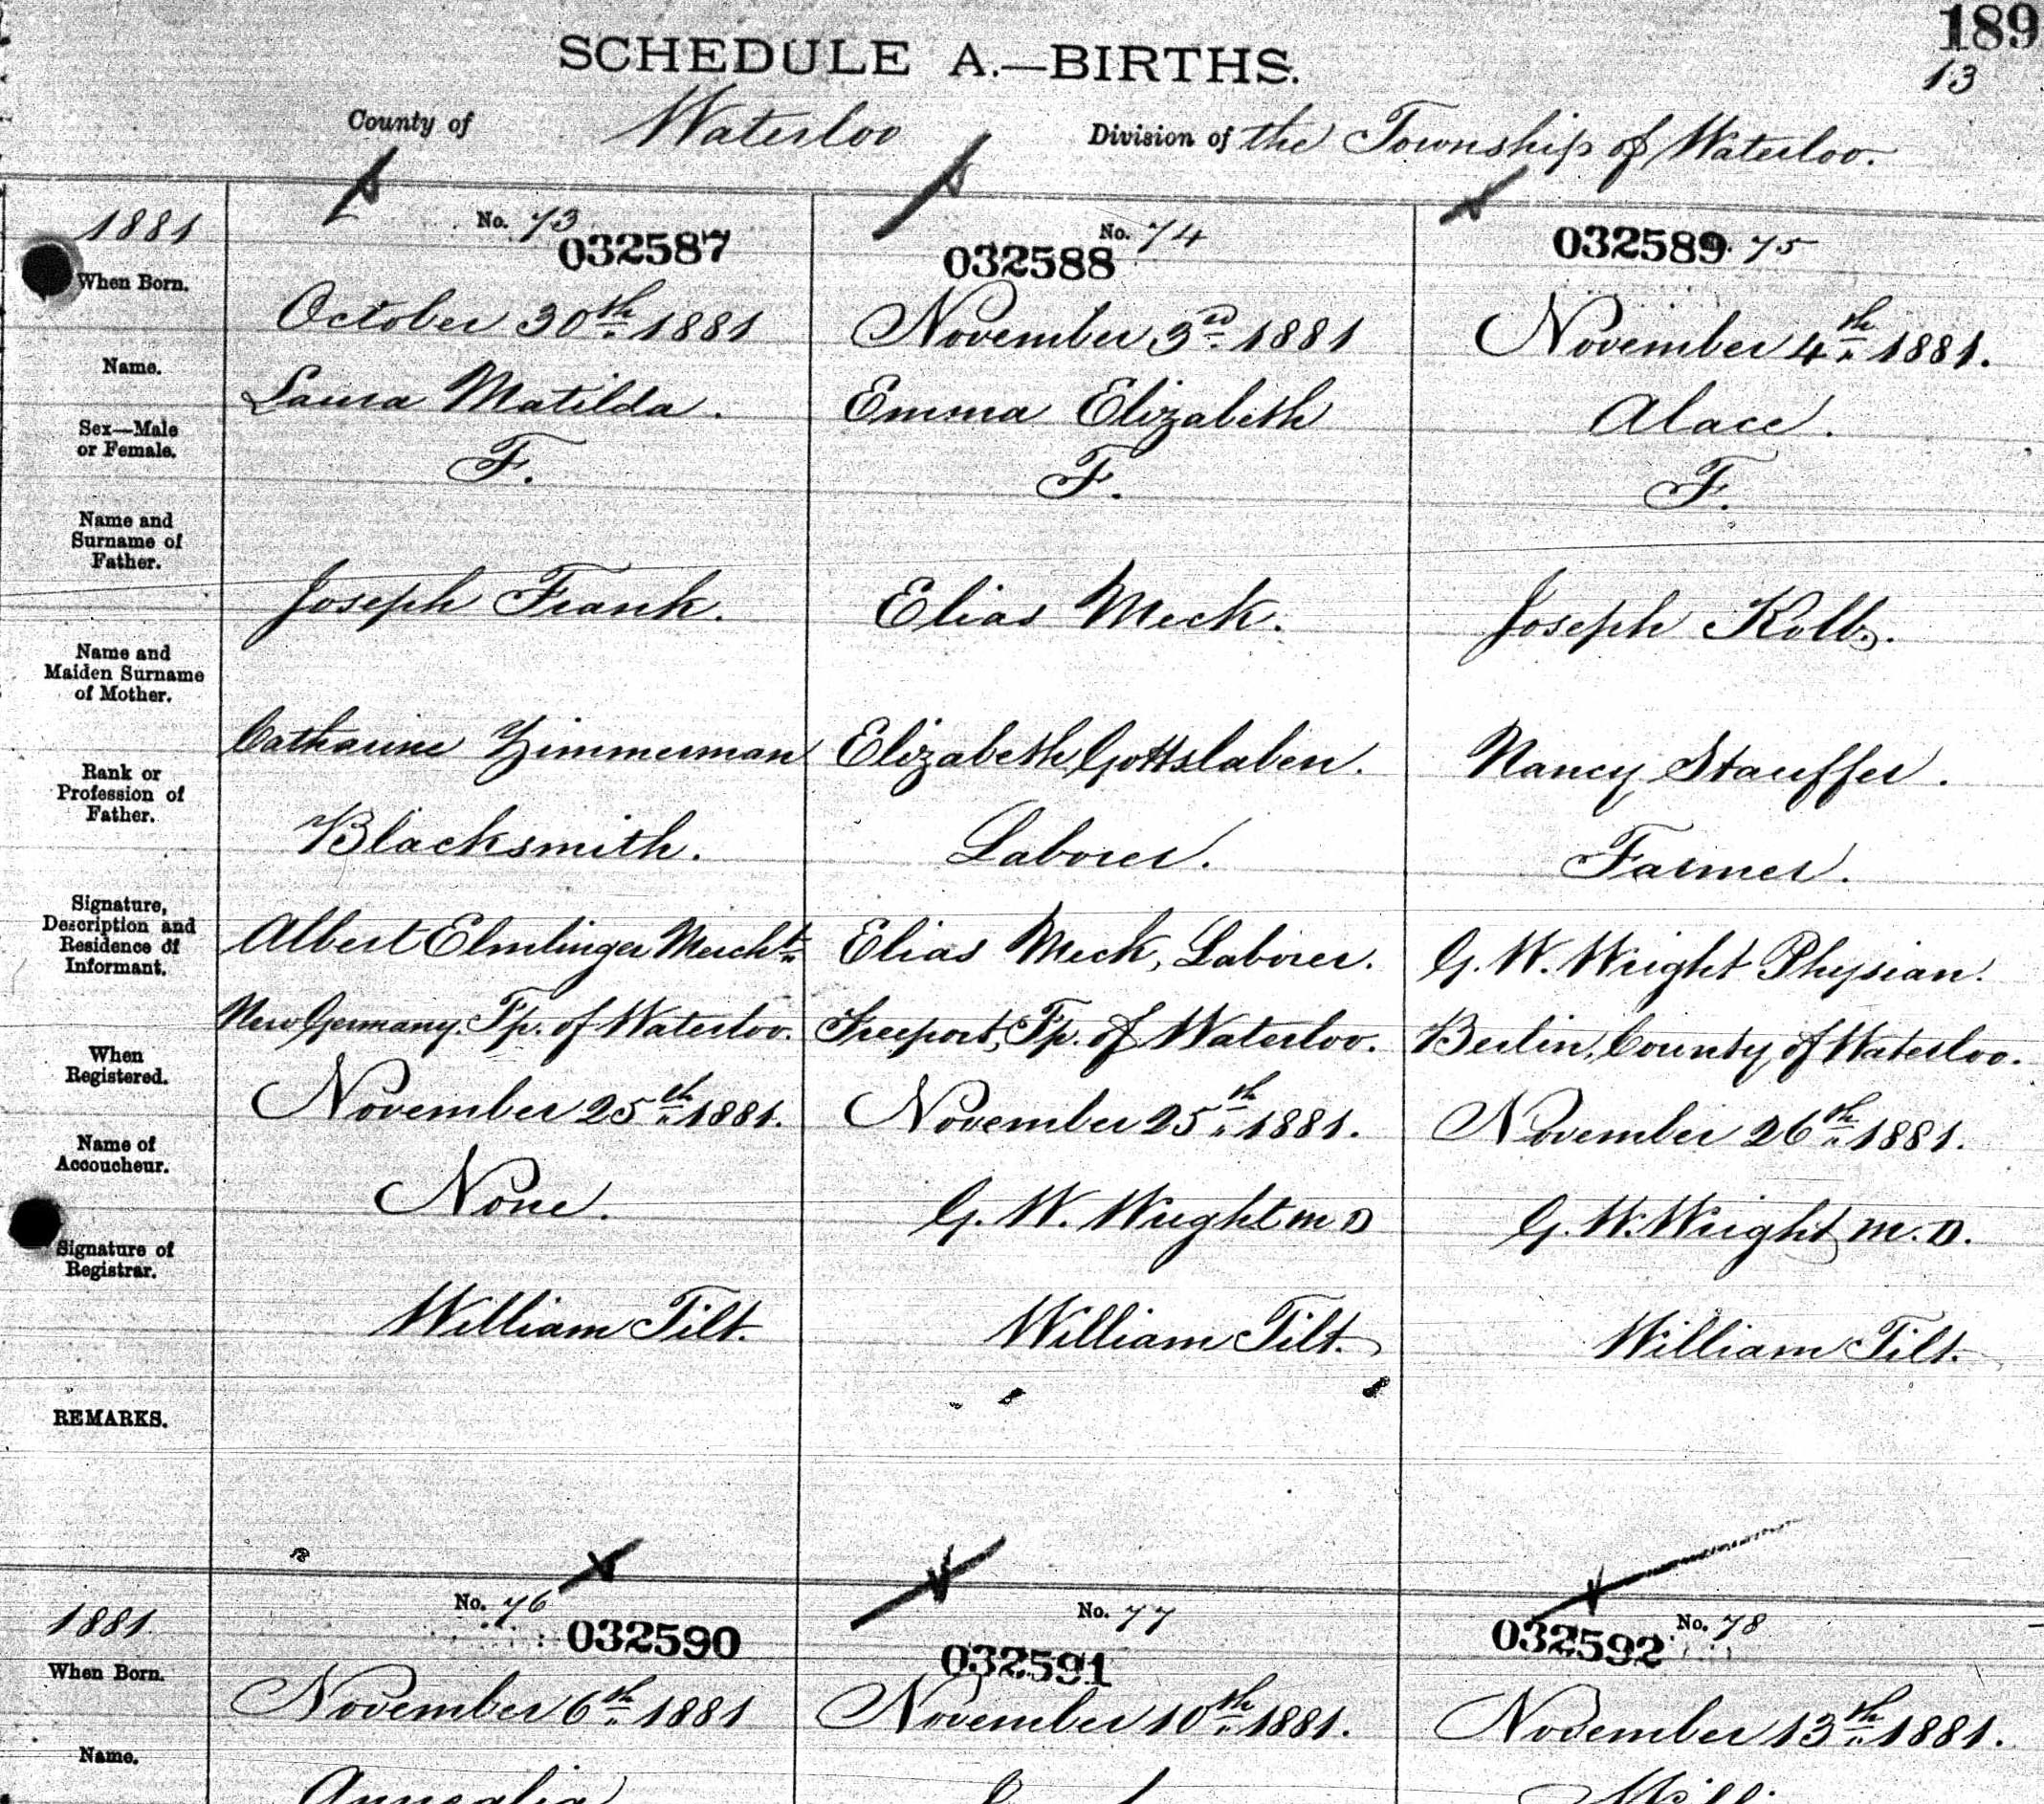 189
13
SCHEDULE A.—BIRTHS.
County of Waterloo Division of the Township of Waterloo.
1881 No. 73 032587 No. 74 032588 032589 75
When Born. October 30th 1881 November 3rd 1881 November 4th 1881.
Name. Laura Matilda. Emma Elizabeth Alace.
Sex—Male or Female. F. F. F.
Name and Surname of Father. Joseph Frank. Elias Meck. Joseph Kolb.
Name and Maiden Surname of Mother. Catharine Zimmerman Elizabeth Gottslaben. Nancy Stauffer.
Rank or Profession of Father. Blacksmith. Laborer. Farmer.
Signature, Description and Residence of Informant. Albert Elmlinger Mercht. Elias Meck, Laborer. G. W. Wright Physian.
New Germany. Tp. of Waterloo. Freeport, Tp. of Waterloo. Berlin, County of Waterloo.
When Registered. November 25th 1881. November 25th 1881. November 26th 1881.
Name of Accoucheur. None. G. W. Wright M D G. W. Wright M. D.
Signature of Registrar. William Tilt. William Tilt. William Tilt.
REMARKS.
1881 No. 76 032590 No. 77 032591 032592 No. 78
When Born. November 6th 1881 November 10th 1881. November 13th 1881.
Name. Annealia